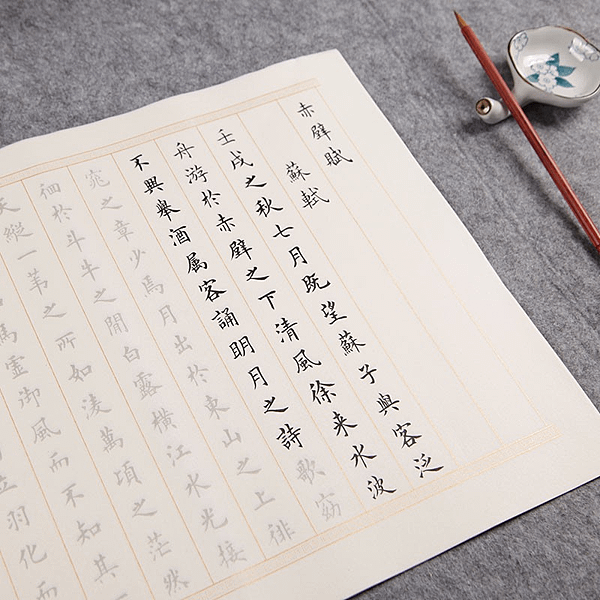 赤壁賦
蘇軾
壬戌之秋七月既望蘇子與客泛
舟游於赤壁之下清風徐来水波
不興舉酒属客誦明月之詩歌窈
窕之章少焉月出於東山之上徘
徊於斗牛之間白露橫江水光接
天縱一葦之所如淩萬頃之茫然
馮虛御風而不知其
立羽化而